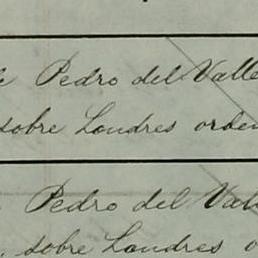 Pedro del Valle
sobre Londres orden
Pedro del Valle
sobre Londres o